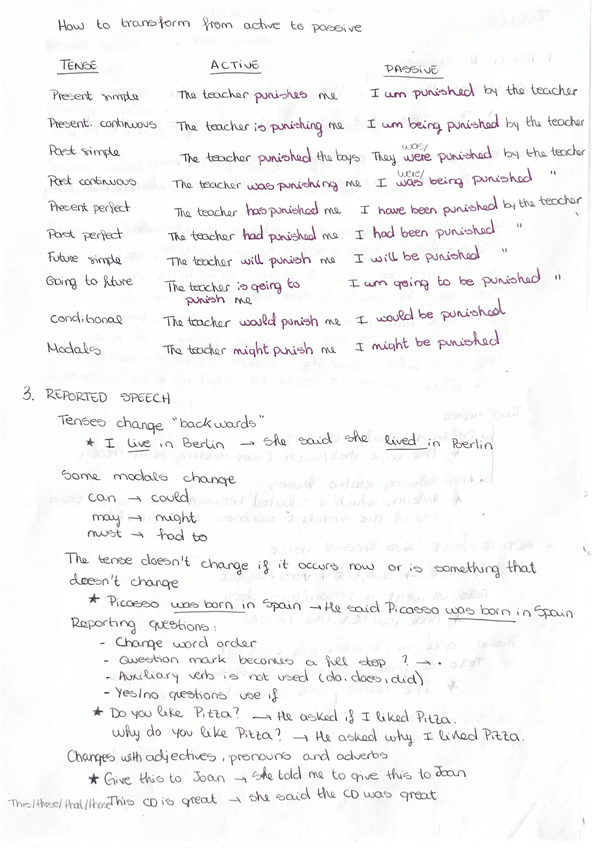 How to transform from active to passive
TENSE ACTIVE PASSIVE
Present simple The teacher punishes me I am punished by the teacher
Present. continuous The teacher is punishing me I am being punished by the teacher
Past simple The teacher punished the boys They were punished by the teacher
was/
Past continuous The teacher was punishing me I was being punished "
were/
Present perfect The teacher has punished me I have been punished by the teacher
Past perfect The teacher had punished me I had been punished "
Future simple The teacher will punish me I will be punished "
Going to future The teacher is going to I am going to be punished "
punish me
Conditional The teacher would punish me I would be punished
Modals The teacher might punish me I might be punished
3. REPORTED SPEECH
Tenses change "backwards"
★ I live in Berlin → She said she lived in Berlin
Some modals change
can → could
may → might
must → had to
The tense doesn't change if it occurs now or is something that
doesn't change
★ Picasso was born in Spain → He said Picasso was born in Spain
Reporting questions:
- Change word order
- Question mark becomes a full stop ? → .
- Auxiliary verb is not used (do, does, did)
- Yes/no questions use if
★ Do you like Pizza? → He asked if I liked Pizza.
Why do you like Pizza? → He asked why I liked Pizza.
Changes with adjectives, pronouns and adverbs
★ Give this to Joan → She told me to give this to Joan
This/these/that/those This CD is great → she said the CD was great